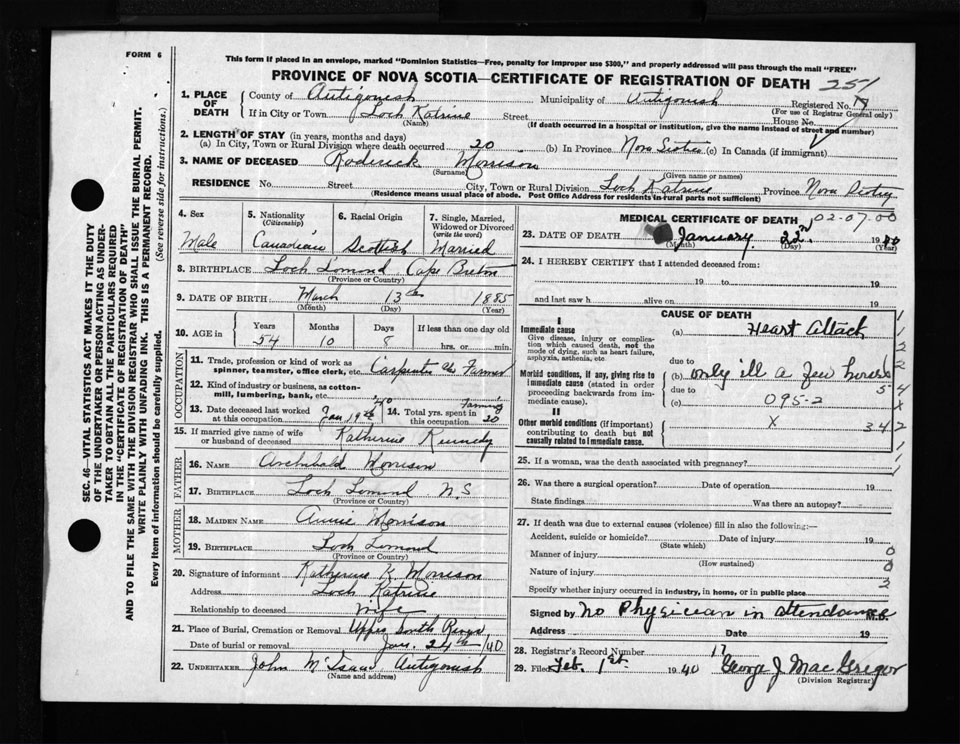 FORM 6
This form if placed in an envelope, marked "Dominion Statistics—Free, penalty for improper use $300," and properly addressed will pass through the mail "FREE"
PROVINCE OF NOVA SCOTIA—CERTIFICATE OF REGISTRATION OF DEATH 251
SEC. 46—VITAL STATISTICS ACT MAKES IT THE DUTY
OF THE UNDERTAKER OR PERSON ACTING AS UNDER-
TAKER TO OBTAIN ALL THE PARTICULARS REQUIRED
IN THE "CERTIFICATE OF REGISTRATION OF DEATH"
AND TO FILE THE SAME WITH THE DIVISION REGISTRAR WHO SHALL ISSUE THE BURIAL PERMIT.
WRITE PLAINLY WITH UNFADING INK. THIS IS A PERMANENT RECORD.
Every item of information should be carefully supplied. (See reverse side for instructions.)
1. PLACE OF DEATH
County of Antigonish Municipality of Antigonish Registered No.
(For use of Registrar General only)
If in City or Town Loch Katrine Street House No.
(Name) (If death occurred in a hospital or institution, give the name instead of street and number)
2. LENGTH OF STAY (in years, months and days)
(a) In City, Town or Rural Division where death occurred 20 (b) In Province Nova Scotia (c) In Canada (if immigrant)
3. NAME OF DECEASED Roderick Morrison
(Surname) (Given name or names)
RESIDENCE No. Street City, Town or Rural Division Loch Katrine Province Nova Scotia
(Residence means usual place of abode. Post Office Address for residents in rural parts not sufficient)
4. Sex Male
5. Nationality (Citizenship) Canadian
6. Racial Origin Scottish
7. Single, Married, Widowed or Divorced (write the word) Married
8. BIRTHPLACE Loch Lomond Cape Breton
(Province or Country)
9. DATE OF BIRTH March 13th 1885
(Month) (Day) (Year)
10. AGE in Years 54 Months 10 Days 8 If less than one day old
hrs. or min.
OCCUPATION
11. Trade, profession or kind of work as
spinner, teamster, office clerk, etc. Carpenter also Farmer
12. Kind of industry or business, as cotton-
mill, lumbering, bank, etc.
13. Date deceased last worked
at this occupation Jan 19th 40
14. Total yrs. spent in
this occupation Farming 20
15. If married give name of wife
or husband of deceased Katherine Kennedy
FATHER
16. NAME Archibald Morrison
17. BIRTHPLACE Loch Lomond N.S
(Province or Country)
MOTHER
18. MAIDEN NAME Annie Morrison
19. BIRTHPLACE Loch Lomond
(Province or Country)
20. Signature of informant Katherine K Morrison
Address Loch Katrine
Relationship to deceased wife
21. Place of Burial, Cremation or Removal Upper South River
Date of burial or removal Jan. 24th 1940
22. UNDERTAKER John McIsaac Antigonish
(Name and address)
MEDICAL CERTIFICATE OF DEATH 102-07.00
23. DATE OF DEATH January 22nd 1940
(Month) (Day) (Year)
24. I HEREBY CERTIFY that I attended deceased from:
19 to 19
and last saw h alive on 19
CAUSE OF DEATH
I
Immediate cause
Give disease, injury or complica-
tion which caused death, not the
mode of dying, such as heart failure,
asphyxia, asthenia, etc.
(a) Heart Attack
due to
Morbid conditions, if any, giving rise to
immediate cause (stated in order
proceeding backwards from im-
mediate cause)
(b) only ill a few hours
due to 5
(c) 095-2
II
Other morbid conditions (if important)
contributing to death but not
causally related to immediate cause.
X 34
25. If a woman, was the death associated with pregnancy?
26. Was there a surgical operation? Date of operation 19
State findings Was there an autopsy?
27. If death was due to external causes (violence) fill in also the following:—
Accident, suicide or homicide? Date of injury 19
(State which)
Manner of injury 0
(How sustained)
Nature of injury
Specify whether injury occurred in industry, in home, or in public place
Signed by no Physician in attendance M.D.
Address Date 19
28. Registrar's Record Number 17
29. Filed Feb. 1st. 1940 George J. MacGregor
(Division Registrar)